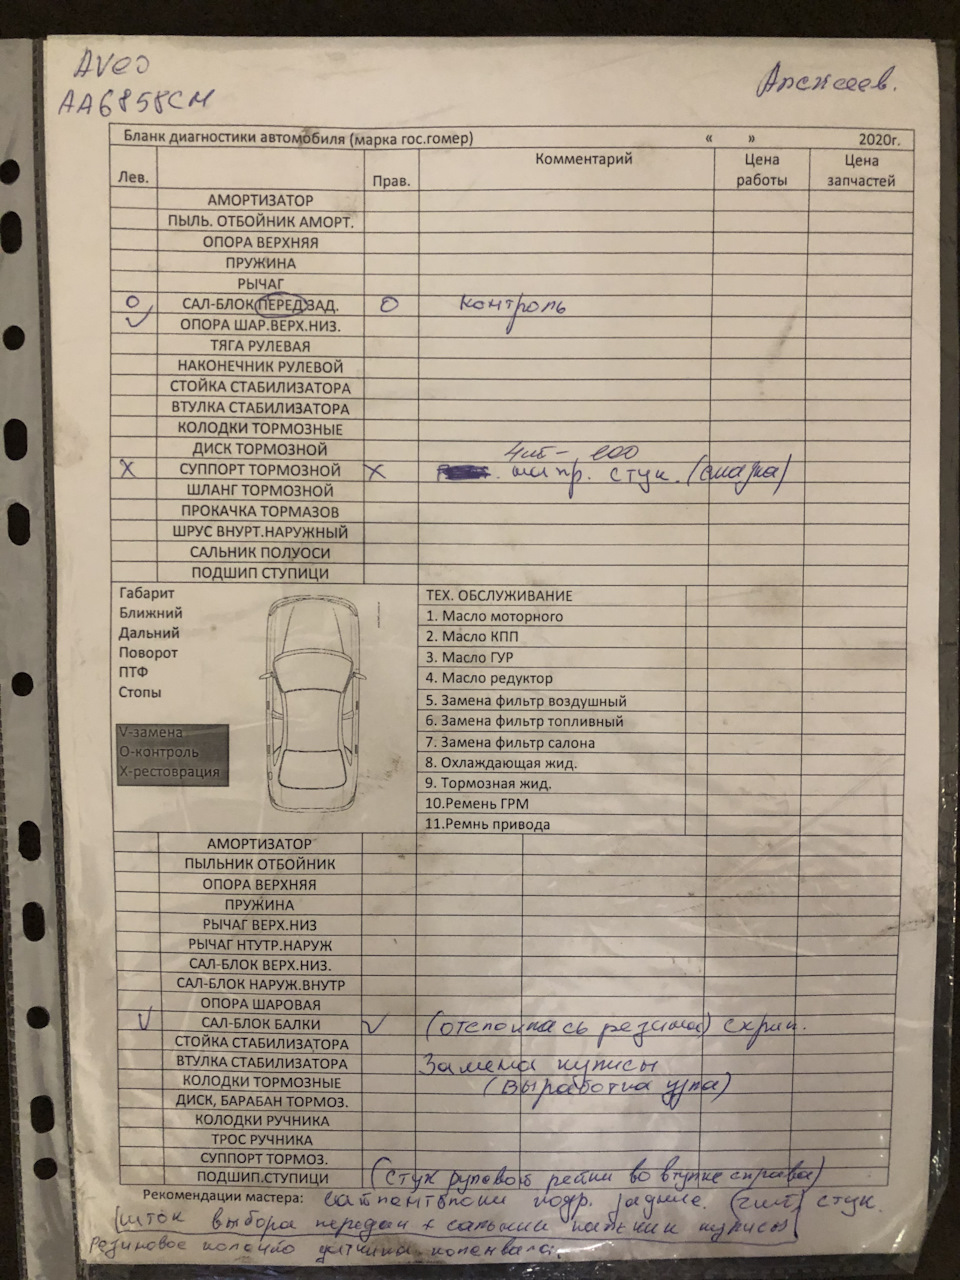 Aveo
AA6858CM
Бланк диагностики автомобиля (марка гос.гомер) « » 2020г.
Лев. Прав. Комментарий Цена работы Цена запчастей
АМОРТИЗАТОР
ПЫЛЬ. ОТБОЙНИК АМОРТ.
ОПОРА ВЕРХНЯЯ
ПРУЖИНА
РЫЧАГ
О САЛ-БЛОК ПЕРЕД ЗАД. О контроль
V ОПОРА ШАР.ВЕРХ.НИЗ.
ТЯГА РУЛЕВАЯ
НАКОНЕЧНИК РУЛЕВОЙ
СТОЙКА СТАБИЛИЗАТОРА
ВТУЛКА СТАБИЛИЗАТОРА
КОЛОДКИ ТОРМОЗНЫЕ
ДИСК ТОРМОЗНОЙ
4шт-
X СУППОРТ ТОРМОЗНОЙ X стук. (смазка)
ШЛАНГ ТОРМОЗНОЙ
ПРОКАЧКА ТОРМАЗОВ
ШРУС ВНУРТ.НАРУЖНЫЙ
САЛЬНИК ПОЛУОСИ
ПОДШИП СТУПИЦИ
Габарит
Ближний
Дальний
Поворот
ПТФ
Стопы
V-замена
О-контроль
Х-рестоврация
ТЕХ. ОБСЛУЖИВАНИЕ
1. Масло моторного
2. Масло КПП
3. Масло ГУР
4. Масло редуктор
5. Замена фильтр воздушный
6. Замена фильтр топливный
7. Замена фильтр салона
8. Охлаждающая жид.
9. Тормозная жид.
10.Ремень ГРМ
11.Ремнь привода
АМОРТИЗАТОР
ПЫЛЬНИК ОТБОЙНИК
ОПОРА ВЕРХНЯЯ
ПРУЖИНА
РЫЧАГ ВЕРХ.НИЗ
РЫЧАГ НТУТР.НАРУЖ
САЛ-БЛОК ВЕРХ.НИЗ.
САЛ-БЛОК НАРУЖ.ВНУТР
ОПОРА ШАРОВАЯ
V САЛ-БЛОК БАЛКИ V (отслоилась резина) скрип.
СТОЙКА СТАБИЛИЗАТОРА
ВТУЛКА СТАБИЛИЗАТОРА Замена кулисы
КОЛОДКИ ТОРМОЗНЫЕ (выработка узла)
ДИСК, БАРАБАН ТОРМОЗ.
КОЛОДКИ РУЧНИКА
ТРОС РУЧНИКА
СУППОРТ ТОРМОЗ.
ПОДШИП.СТУПИЦИ (Стук рулевой рейки во втулке справа)
Рекомендации мастера: сайлентблоки подр. задние. (2шт) стук.
(шток выбора передач + сальник кулисы)
резиновое колечко датчика коленвала.